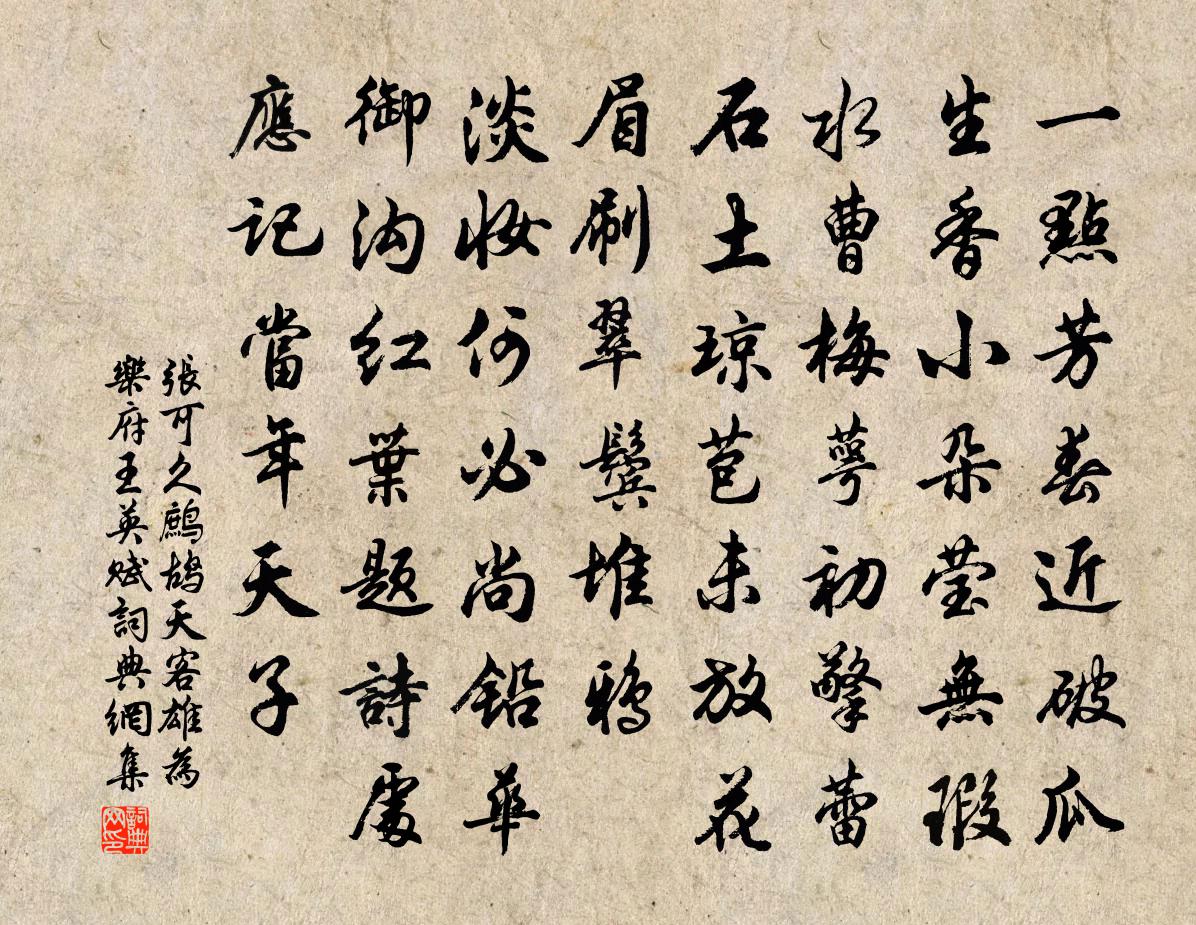 一點芳春近破瓜
生香小朵莹無瑕
水曹梅萼初擎蕾
石土琼苞未放花
眉刷翠鬓堆鸦
淡妝何必尚鉛華
御沟红葉题詩處
應记當年天子
張可久鷓鸪天客雄為
樂府王英赋詞典網集
詞典网印